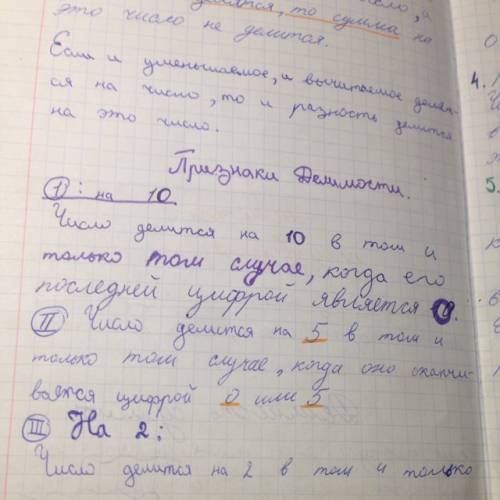 делятся, то сумма на
это число не делится.
Если и уменьшаемое, и вычитаемое делит-
ся на число, то и разность делится
на это число.
Признаки Делимости.
I : на 10
Число делится на 10 в том и
только том случае, когда его
последней цифрой является 0.
II Число делится на 5 в том и
только том случае, когда оно оканчи-
вается цифрой 0 или 5
III На 2:
Число делится на 2 в том и только
4.
5.